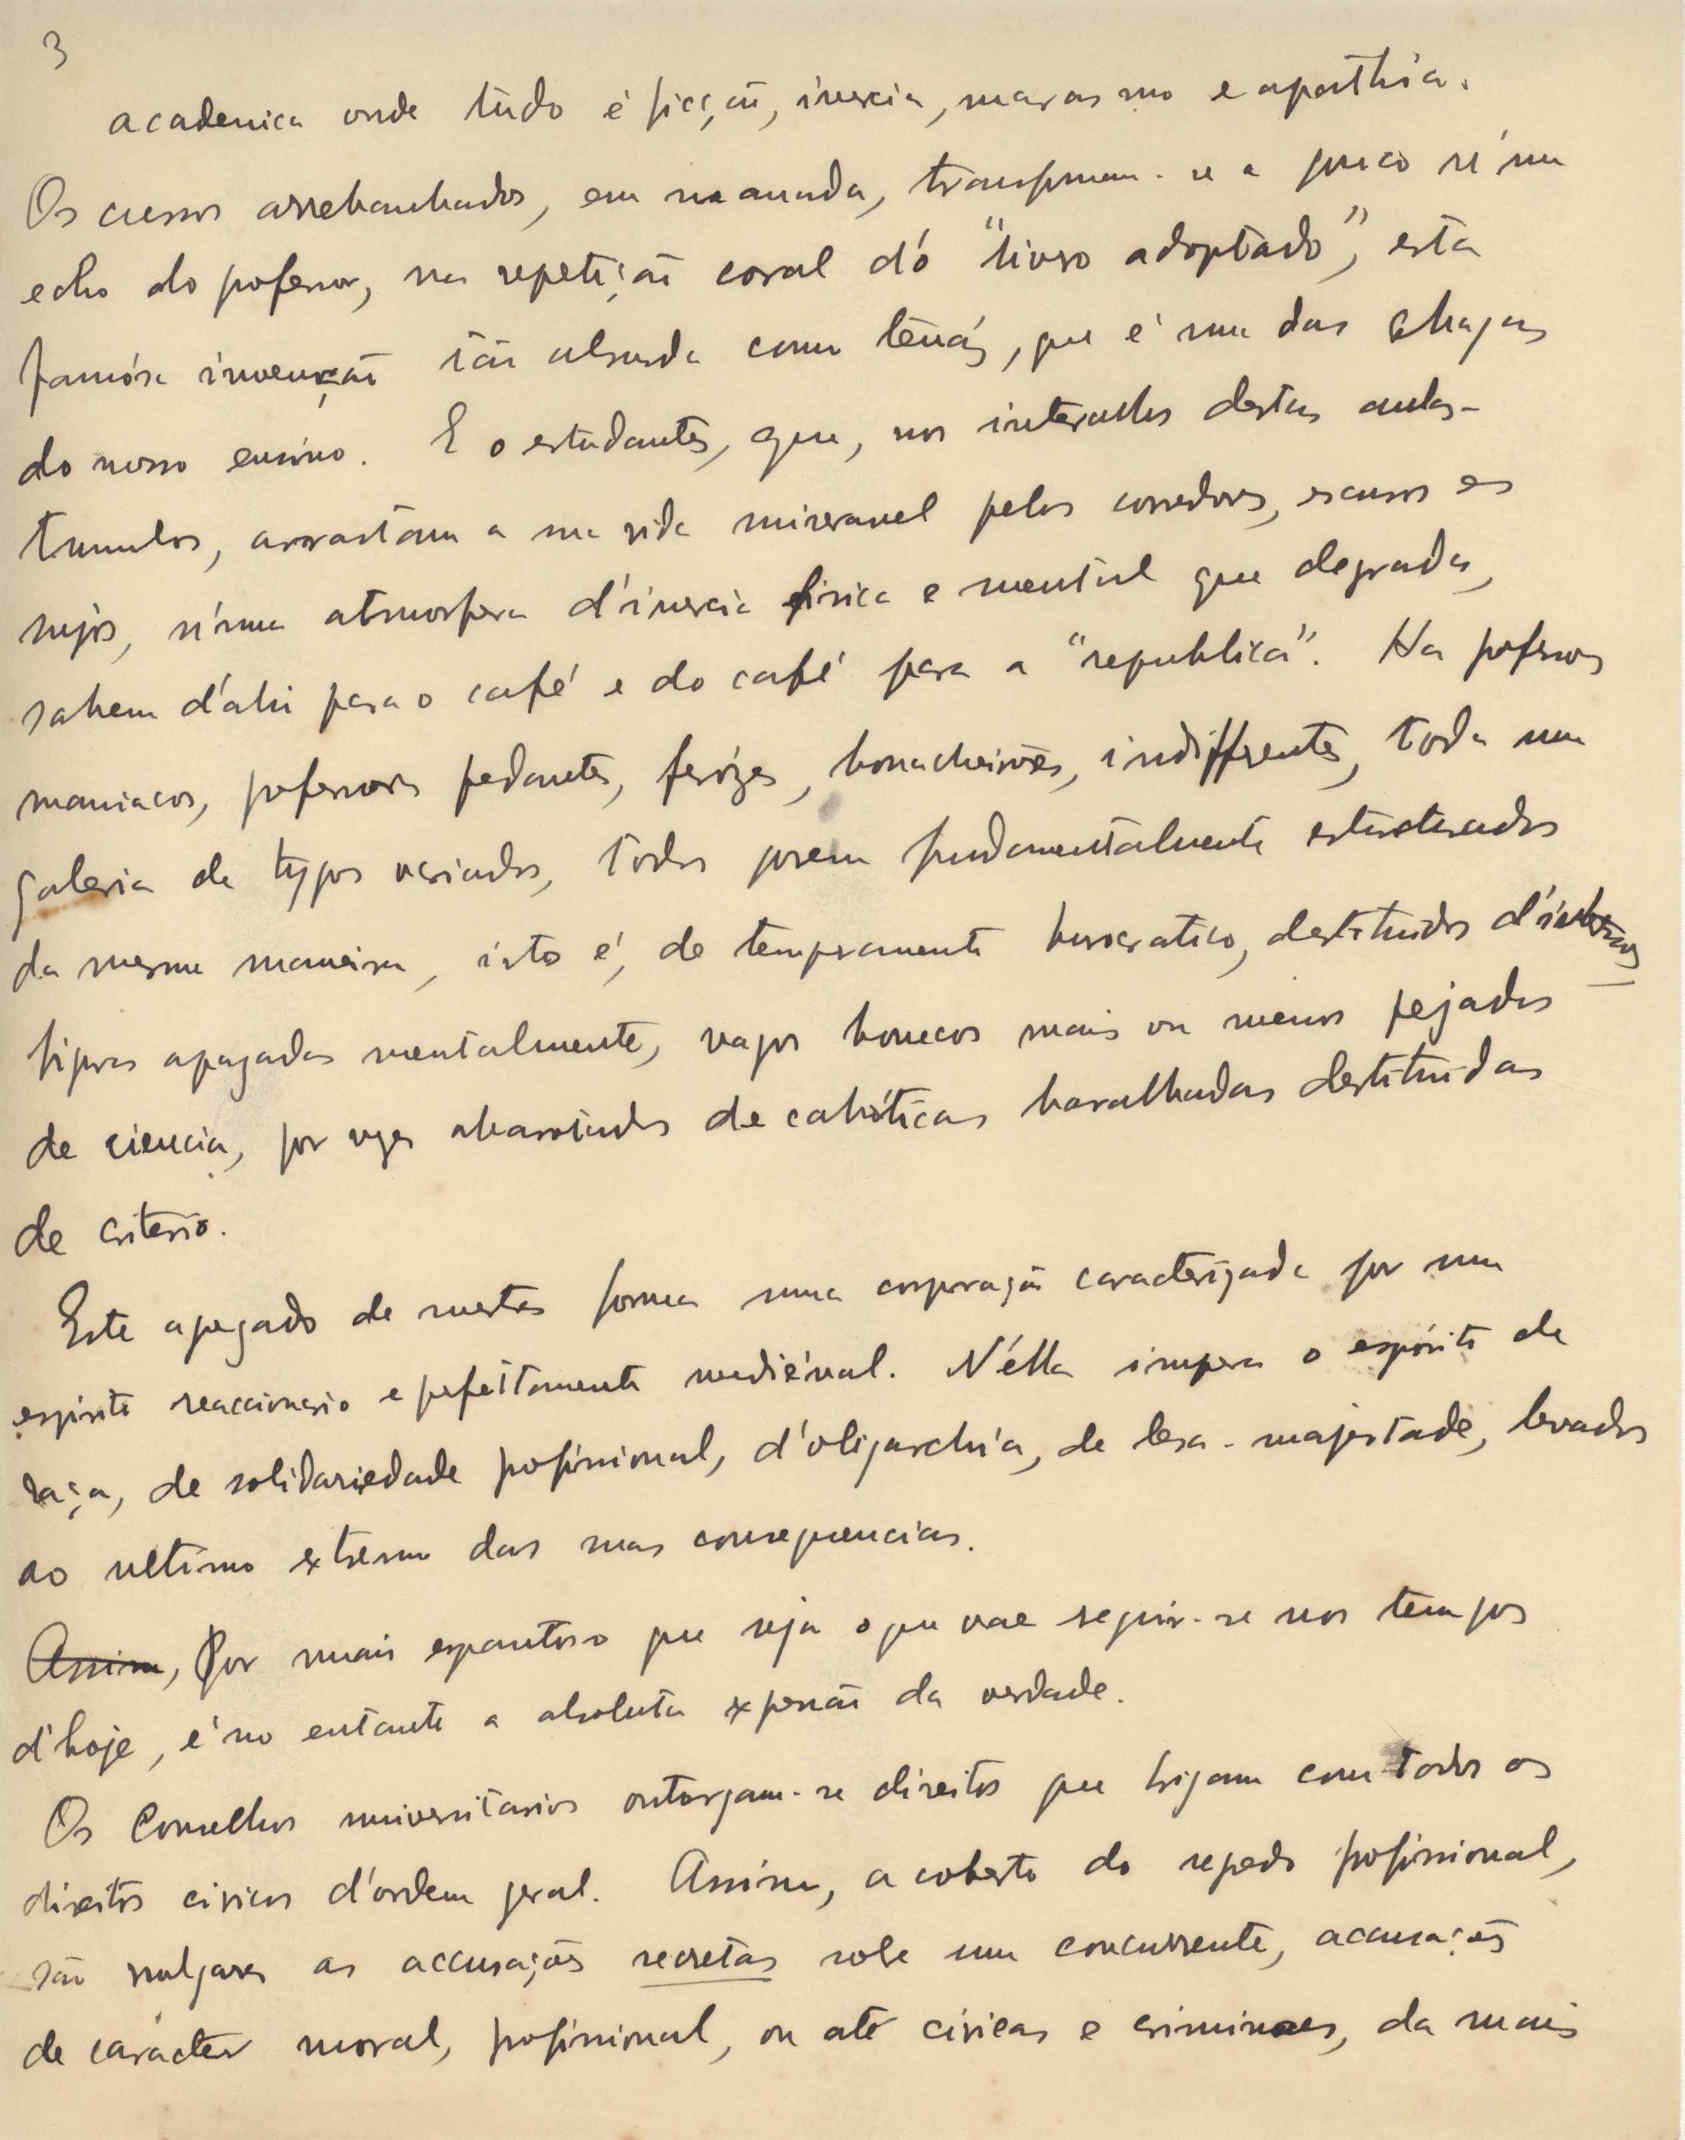 3
academica onde tudo é ficção, inercia, marasmo e apathia.
Os cursos arrebanhados, em manada, transformam-se a pouco n'um
echo do professor, na repetição coral d'ó "livro adoptado", esta
famósa invenção tão absurda como tenáz, que é uma das chagas
do nosso ensino. E o estudantes, que, nos intervallos destas aulas-
tumulos, arrastam a sua vida miseravel pelos corredores, escuros e
sujos, n'uma atmosfera d'inercia fisica e mental que degrada,
sahem d'ahi para o café e do café para a "republica". Ha professores
maniacos, professores pedantes, ferózes, bonacheirões, indifferentes, toda uma
galeria de typos variados, todos porem fundamentalmente estructurados
da mesma maneira, isto é, de temperamento burocratico, destituidos
figuras apagadas mentalmente, vagos bonecos mais ou menos pejados
de ciencia, por vezes abarrotados de cahóticas baralhadas destituidas
de criterio.
Este apagado de mestres forma uma corporação caracterizada por um
espirito reaccionario e perfeitamente mediéval. N'élla impera o espirito de
raça, de solidariedade profissional, d'oligarchia, de lesa-majestade, levados
ao ultimo extremo das suas consequencias.
Assim, Por mais espantoso que seja o que vae seguir-se nos tempos
d'hoje, é no entanto a absoluta expressão da verdade.
Os Conselhos universitarios outorgam-se direitos que brigam com todos os
direitos civicos d'ordem geral. Assim, a coberto do segredo profissional,
são vulgares as accusações secretas sobre um concurrente, accusações
de caracter moral, profissional, ou até civicas e criminaes, da mais